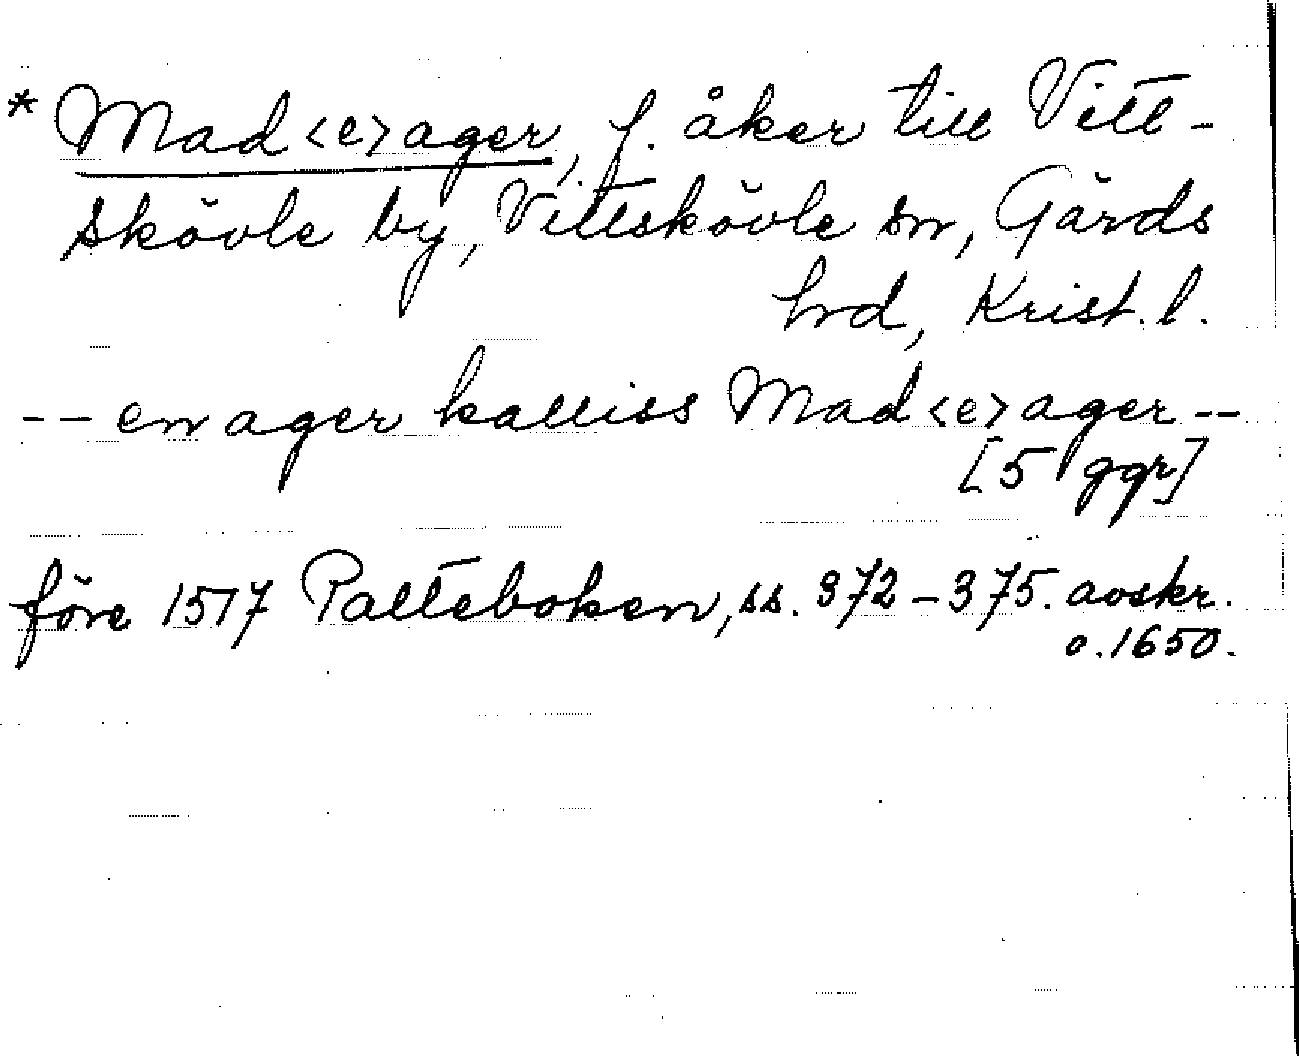 * Mad<e>ager, f. åker till Vitt-
skövle by, Vittskövle sn, Gärds
hrd, Krist. l.
-- en ager kalliss Mad<e>ager --
[5 ggr]
före 1517 Palteboken, ss. 372-375. avskr.
o. 1650.